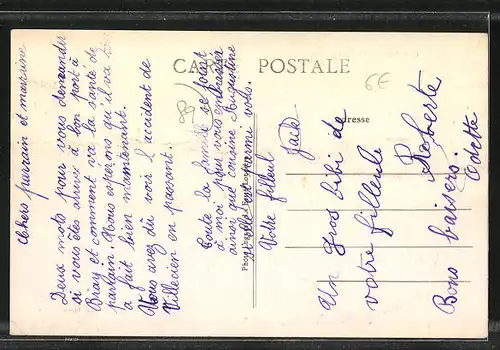 CARTE POSTALE
Adresse
6E
Chers parrain et marraine
Deux mots pour vous demander
si vous êtes arrivé à bon port à
Bray et comment va la santé de
parrain. Nous espérons qu'il va
à fait bien maintenant.
Vous avez dû voir l'accident de
Villecien en passant.
Toute la famille se joint
à moi pour vous embrasser
ainsi que cousine Augustine
si elle est parmi vous.
Votre filleul
Jack
Un gros bibi de
votre filleule
Roberte
Bons baisers.
Odette